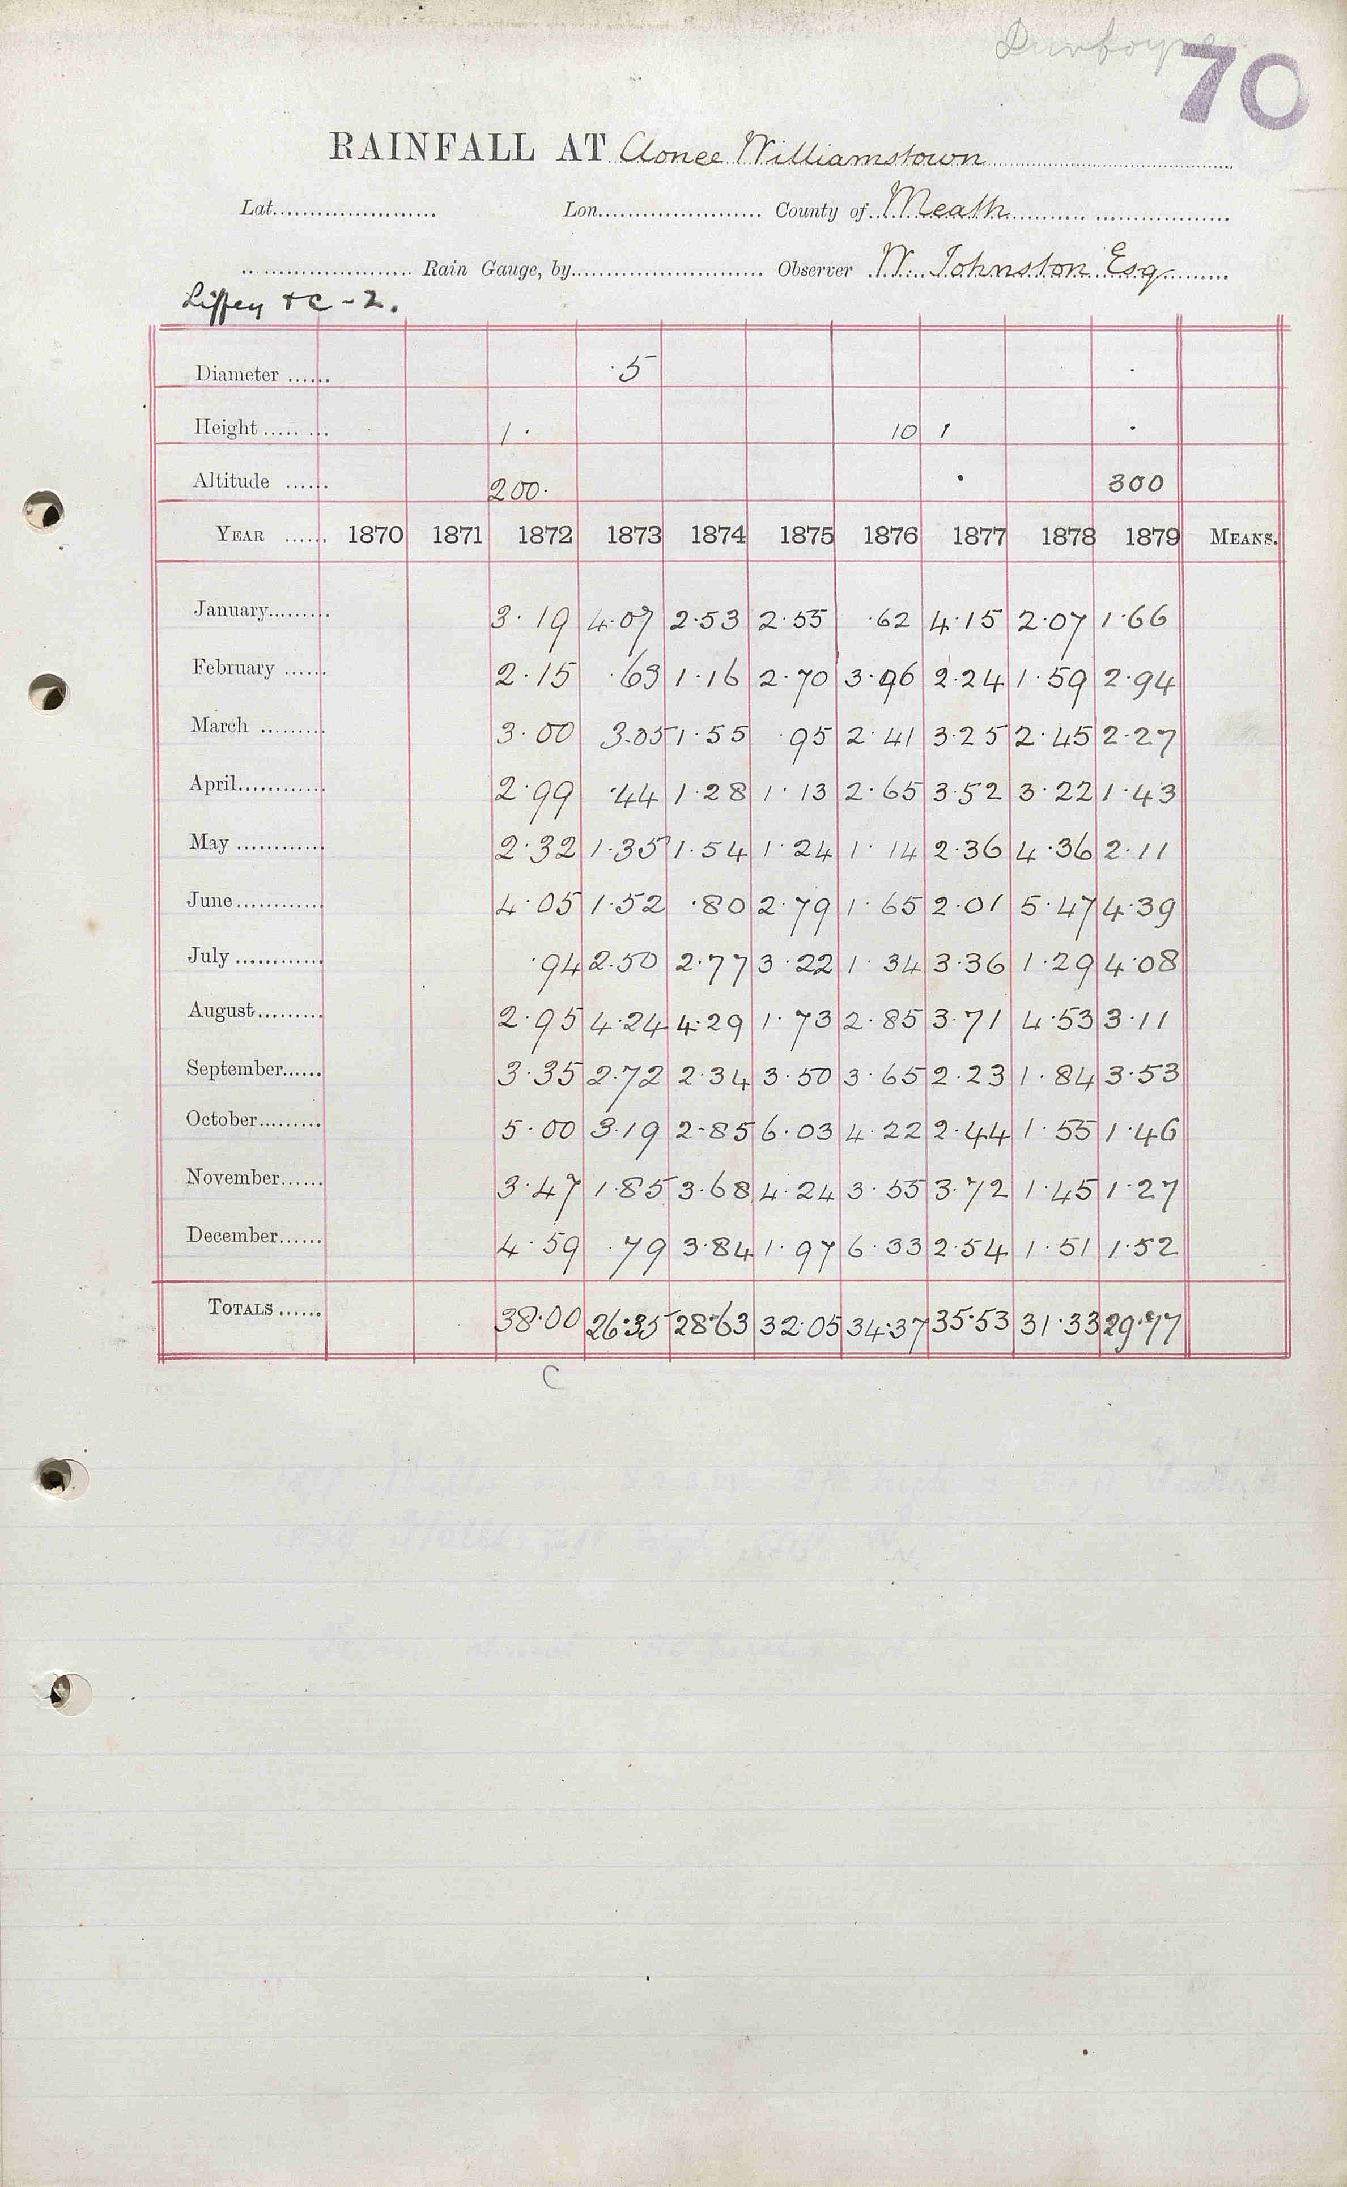 Dunboyne
70
RAINFALL AT Clonee Williamstown
Lat. Lon. County of Meath
Rain Gauge, by Observer W. Johnston Esq
Liffey &c - 2.
Diameter ...... ·5
Height ........ 1· 10 1
Altitude ...... 200· 300
YEAR ...... 1870 1871 1872 1873 1874 1875 1876 1877 1878 1879 MEANS.
January......... 3·19 4·07 2·53 2·55 ·62 4·15 2·07 1·66
February ...... 2·15 ·63 1·16 2·70 3·96 2·24 1·59 2·94
March ......... 3·00 3·05 1·55 ·95 2·41 3·25 2·45 2·27
April............ 2·99 ·44 1·28 1·13 2·65 3·52 3·22 1·43
May ............ 2·32 1·35 1·54 1·24 1·14 2·36 4·36 2·11
June............ 4·05 1·52 ·80 2·79 1·65 2·01 5·47 4·39
July ............ ·94 2·50 2·77 3·22 1·34 3·36 1·29 4·08
August......... 2·95 4·24 4·29 1·73 2·85 3·71 4·53 3·11
September...... 3·35 2·72 2·34 3·50 3·65 2·23 1·84 3·53
October......... 5·00 3·19 2·85 6·03 4·22 2·44 1·55 1·46
November...... 3·47 1·85 3·68 4·24 3·55 3·72 1·45 1·27
December...... 4·59 ·79 3·84 1·97 6·33 2·54 1·51 1·52
TOTALS ...... 38·00 26·35 28·63 32·05 34·37 35·53 31·33 29·77
C